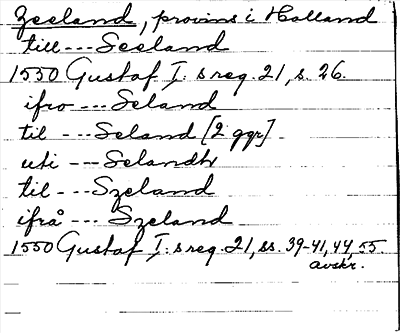 Zeeland, provins i Holland
till --- Seeland
1550 Gustaf I: s reg. 21, s. 26.
ifro --- Seland
til --- Seland [2 ggr]
uti --- Selandh
til --- Szeland
ifrå --- Szeland
1550 Gustaf I: s reg. 21, ss. 39-41, 44, 55.
avskr.